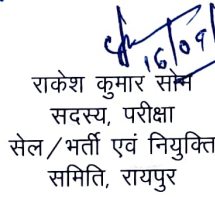 16/09/
राकेश कुमार सोम
सदस्य, परीक्षा
सेल/भर्ती एवं नियुक्ति
समिति, रायपुर